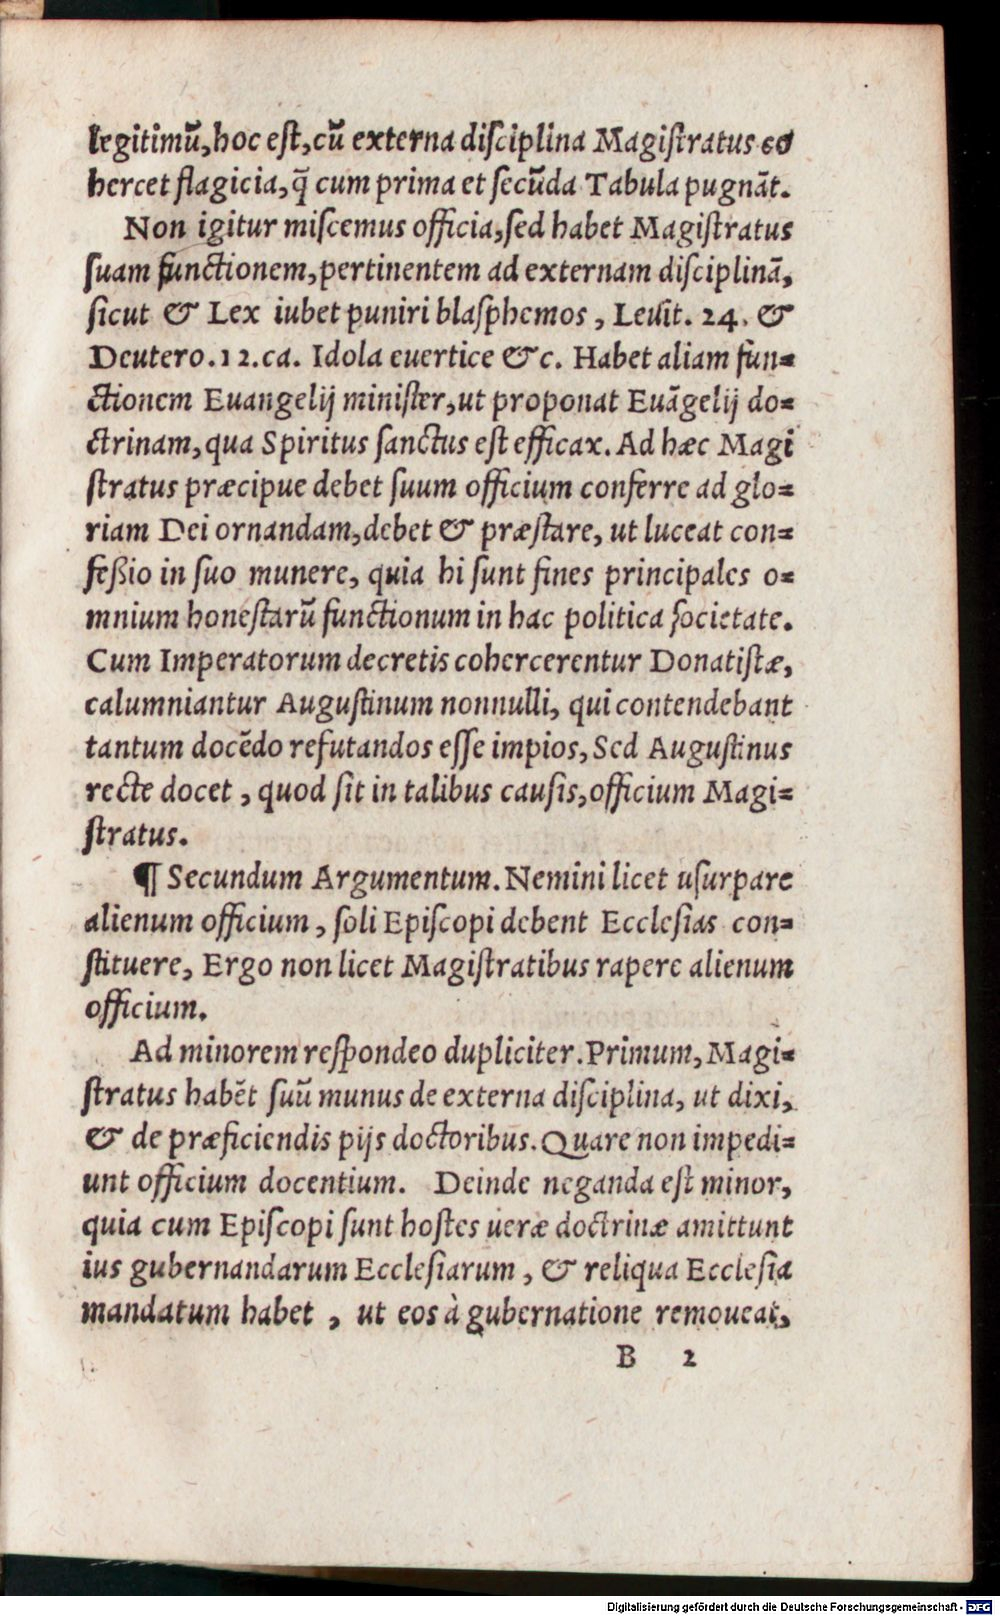 legitimũ, hoc eſt, cũ externa diſciplina Magiſtratus co
hercet flagicia, q̃ cum prima et ſecũda Tabula pugnãt.
Non igitur miſcemus officia, ſed habet Magiſtratus
ſuam functionem, pertinentem ad externam diſciplinã,
ſicut & Lex iubet puniri blaſphemos, Leuit. 24. &
Deutero. 12. ca. Idola euertice &c. Habet aliam fun=
ctionem Euangelij miniſter, ut proponat Euãgelij do=
ctrinam, qua Spiritus ſanctus eſt efficax. Ad hæc Magi
ſtratus præcipue debet ſuum officium conferre ad glo=
riam Dei ornandam, debet & præſtare, ut luceat con=
feßio in ſuo munere, quia hi ſunt fines principales o=
mnium honeſtarũ functionum in hac politica ſocietate.
Cum Imperatorum decretis cohercerentur Donatiſtæ,
calumniantur Auguſtinum nonnulli, qui contendebant
tantum docẽdo refutandos eſſe impios, Sed Auguſtinus
recte docet, quod ſit in talibus cauſis, officium Magi=
ſtratus.
¶ Secundum Argumentum. Nemini licet uſurpare
alienum officium, ſoli Epiſcopi debent Eccleſias con=
ſtituere, Ergo non licet Magiſtratibus rapere alienum
officium.
Ad minorem reſpondeo dupliciter. Primum, Magi=
ſtratus habẽt ſuũ munus de externa diſciplina, ut dixi,
& de præficiendis pijs doctoribus. Quare non impedi=
unt officium docentium. Deinde neganda eſt minor,
quia cum Epiſcopi ſunt hoſtes ueræ doctrinæ amittunt
ius gubernandarum Eccleſiarum, & reliqua Eccleſia
mandatum habet, ut eos à gubernatione remoueat,
B 2
Digitalisierung gefördert durch die Deutsche Forschungsgemeinschaft - DFG